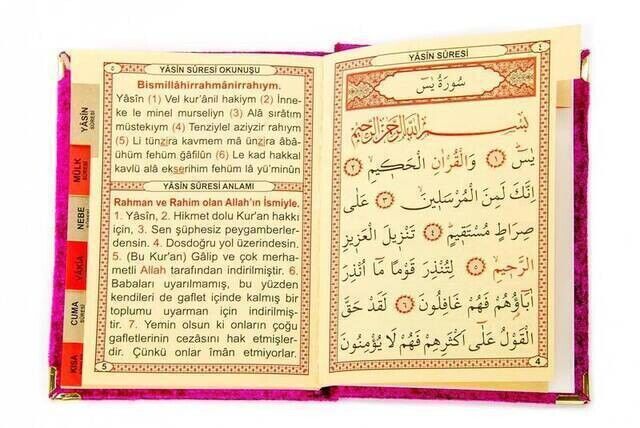 YÂSİN SÛRESİ
٤
سُورَةُ يٰسٓ
بِسْــــمِ اللّٰهِ الرَّحْمٰنِ الرَّحٖيمِ
يٰسٓ ﴿١﴾ وَالْقُرْاٰنِ الْحَكٖيمِ ﴿٢﴾
اِنَّكَ لَمِنَ الْمُرْسَلٖينَ ﴿٣﴾ عَلٰى
صِرَاطٍ مُسْتَقٖيمٍ ﴿٤﴾ تَنْزٖيلَ الْعَزٖيزِ
الرَّحٖيمِ ﴿٥﴾ لِتُنْذِرَ قَوْمًا مَٓا اُنْذِرَ
اٰبَٓاؤُهُمْ فَهُمْ غَافِلُونَ ﴿٦﴾ لَقَدْ حَقَّ
الْقَوْلُ عَلٰٓى اَكْثَرِهِمْ فَهُمْ لَا يُؤْمِنُونَ
4
٥
YÂSİN SÛRESİ OKUNUŞU
Bismillâhirrahmânirrahıym.
Yâsîn (1) Vel kur'ânil hakiym (2) İnne-
ke le minel murseliyn (3) Alâ sırâtım
müstekıym (4) Tenziylel aziyzir rahıym
(5) Li tünzira kavmem mâ ünzira âbâ-
ühüm fehüm ğâfilûn (6) Le kad hakkal
kavlü alâ ekserihim fehüm lâ yü'minûn
YÂSİN SÛRESİ ANLAMI
Rahman ve Rahim olan Allah'ın İsmiyle.
1. Yâsîn, 2. Hikmet dolu Kur'an hakkı
için, 3. Sen şüphesiz peygamberler-
densin. 4. Dosdoğru yol üzerindesin.
5. (Bu Kur'an) Gâlip ve çok merha-
metli Allah tarafından indirilmiştir. 6.
Babaları uyarılmamış, bu yüzden
kendileri de gaflet içinde kalmış bir
toplumu uyarman için indirilmiş-
tir. 7. Yemin olsun ki onların çoğu
gafletlerinin cezasını hak etmişler-
dir. Çünkü onlar îmân etmiyorlar.
5
YÂSİN
SÛRESİ
MÜLK
SÛRESİ
NEBE
SÛRESİ
VÂKIA
CUMA
SÛRESİ
KISA